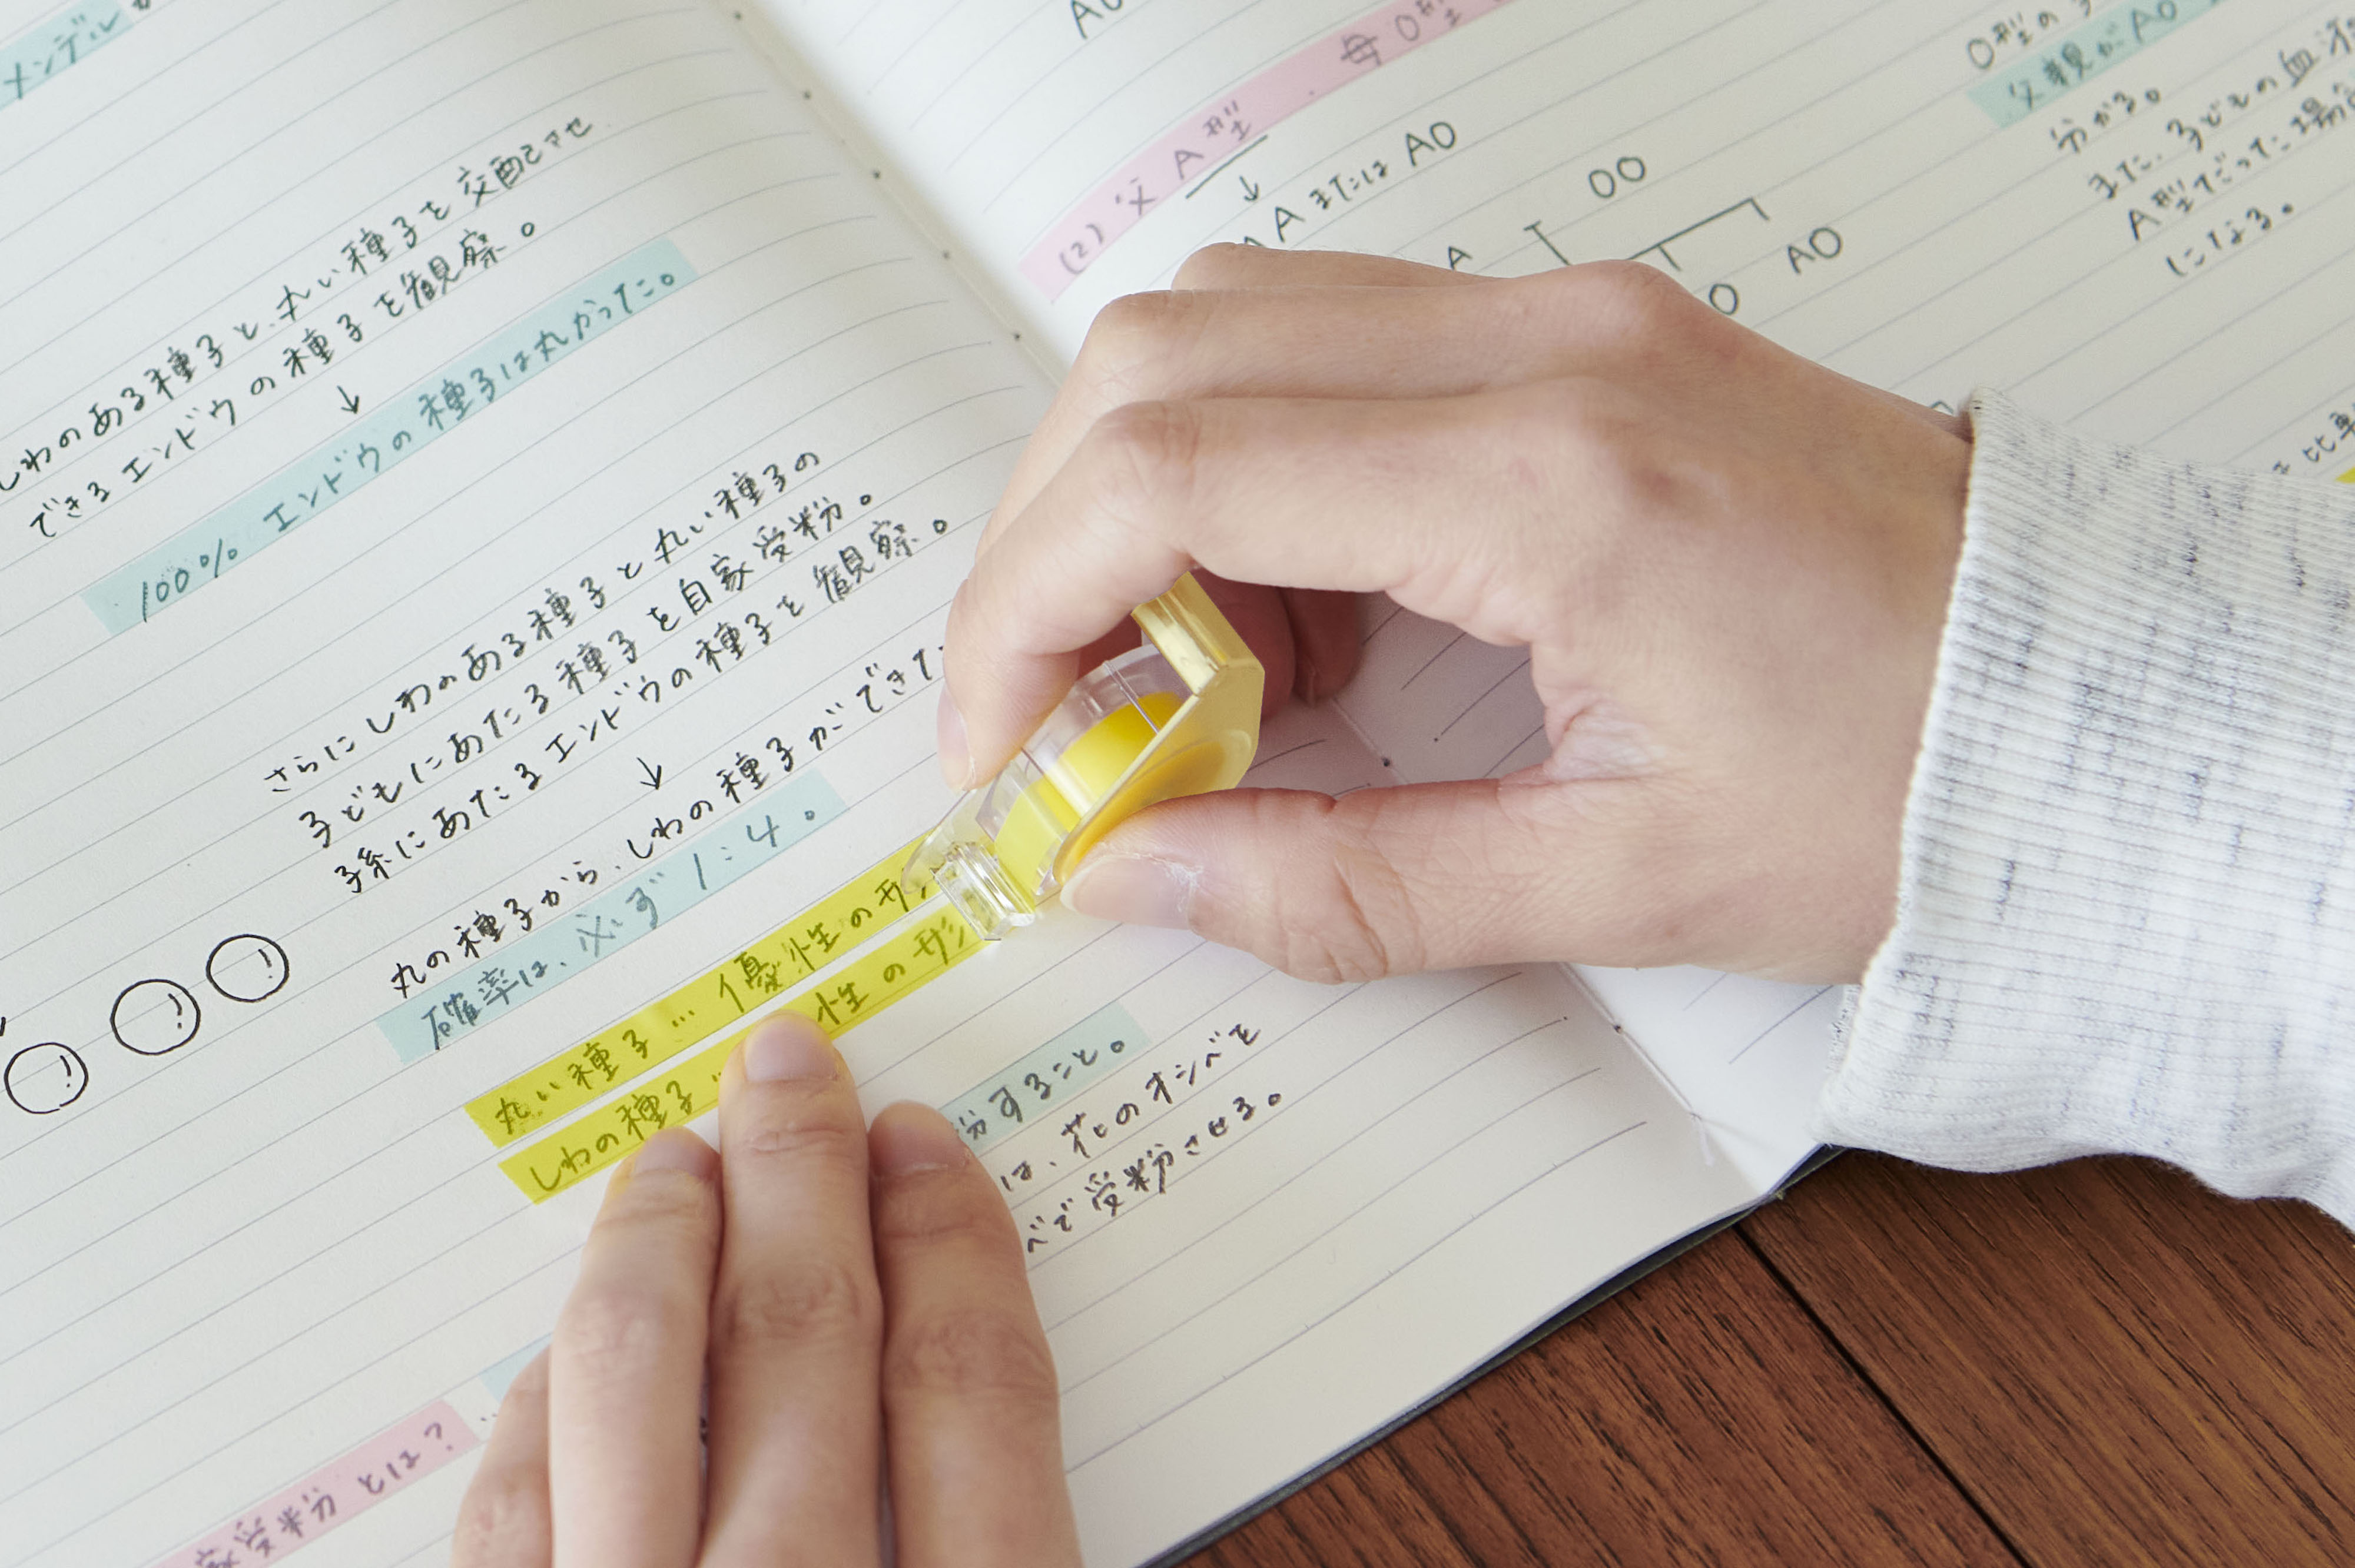 メンデル
しわのある種子と、丸い種子を交配させ
できるエンドウの種子を観察。
↓
100% エンドウの種子は丸かった。
さらにしわのある種子と丸い種子の
子どもにあたる種子を自家受粉。
孫にあたるエンドウの種子を観察。
↓
丸の種子から、しわの種子ができた
確率は、必ず 1:4。
丸い種子… 優性の
しわの種子… 性の
粉すること。
は、花のオシベを
べで受粉させる。
家受粉とは?…
(2) 父A型 . 母O型
↓
AA または AO
OO
A
AO
O型の
父親がAO
分かる。
また、子どもの血液
A型だった場合
になる。
比率